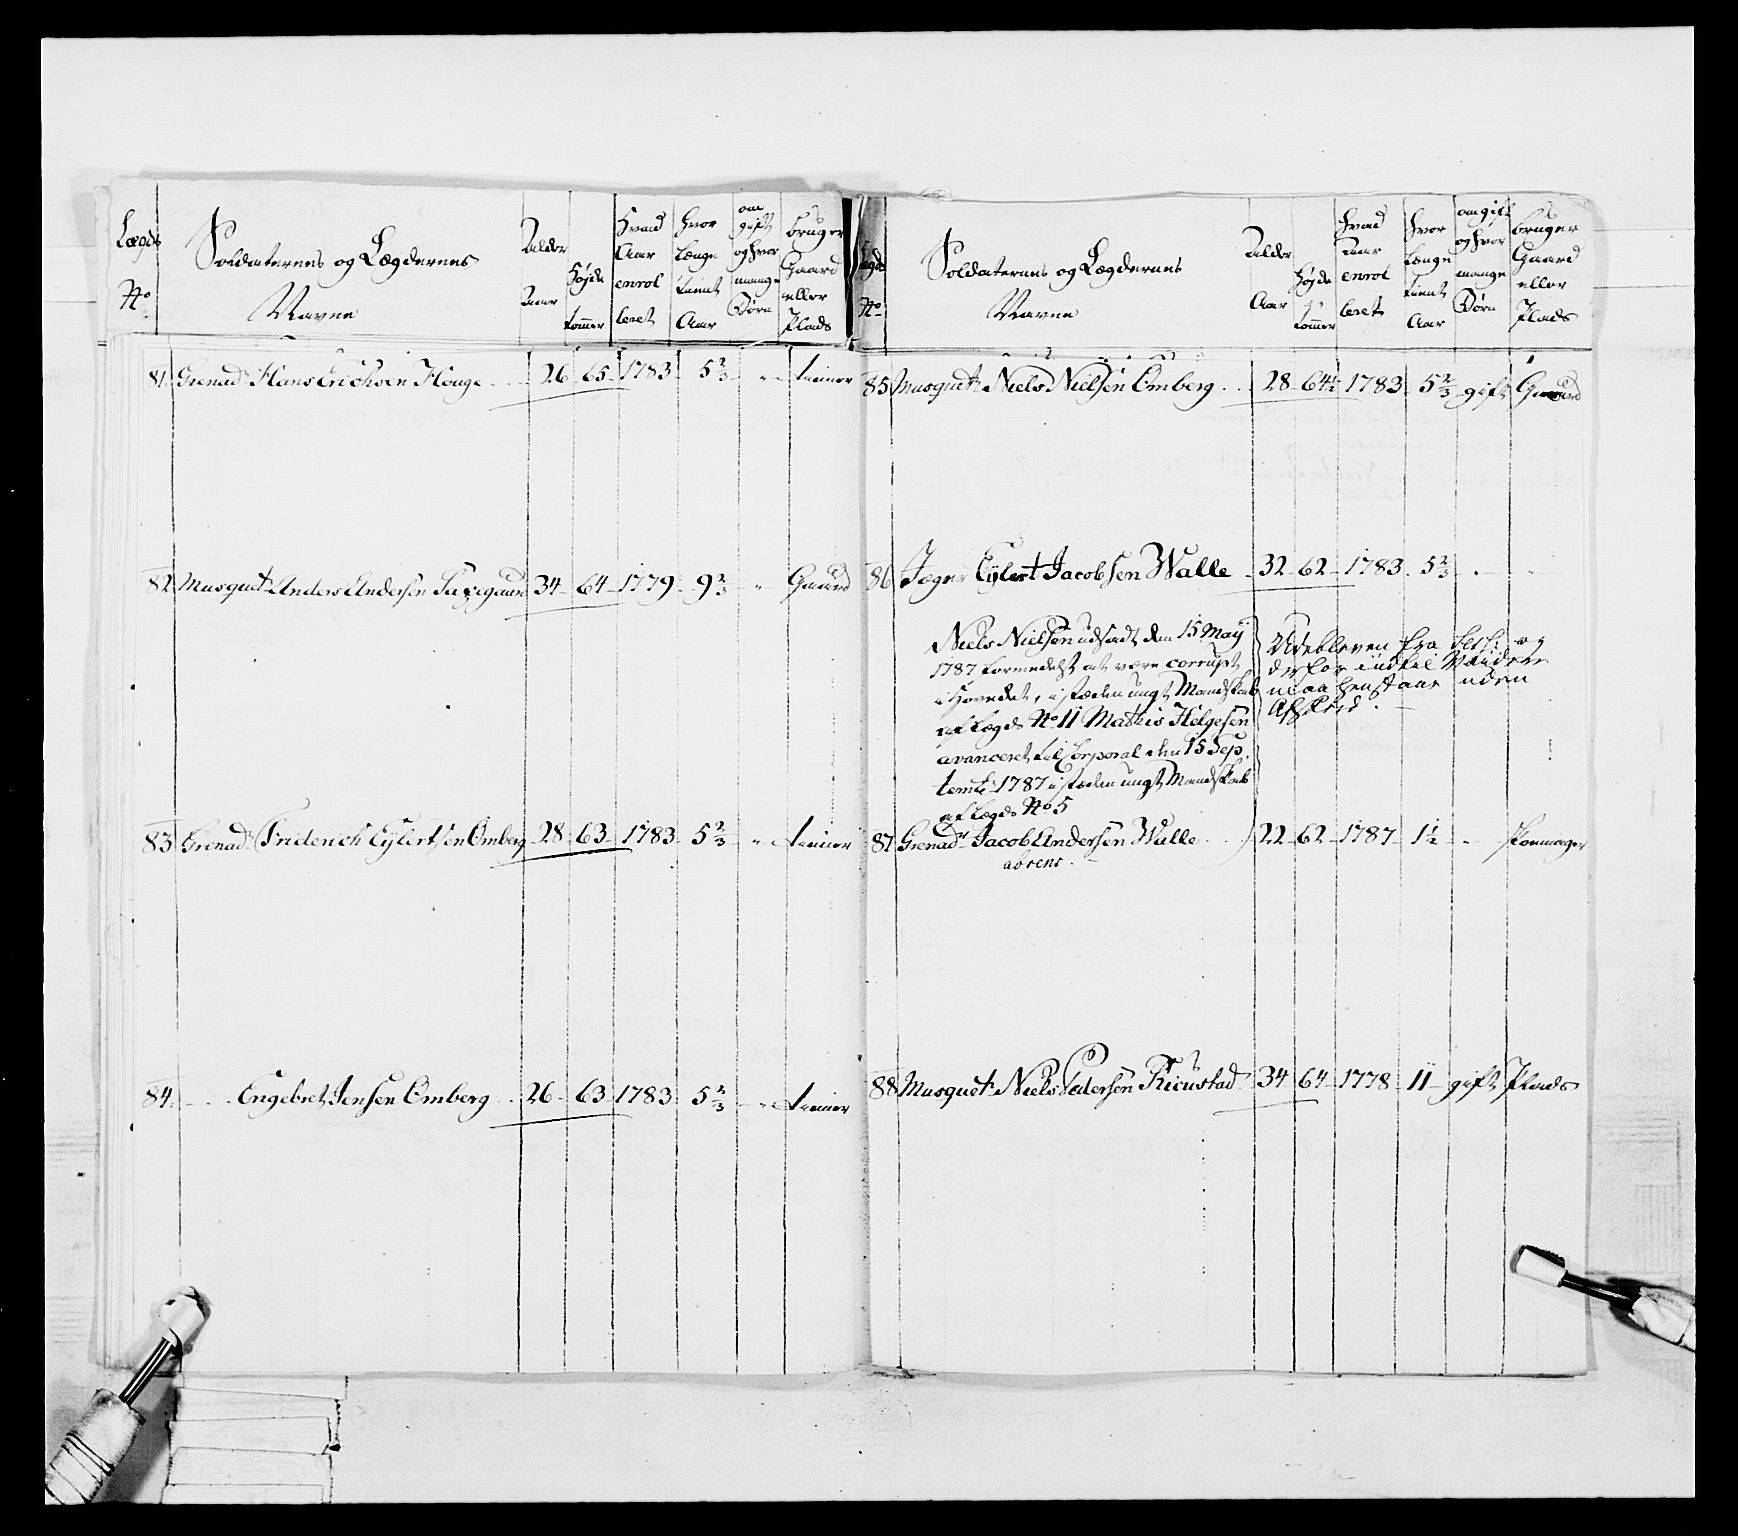 Lægds No
Soldaternes og Lægdernes Navne
Alder Aar
Højde tommer
Hvad Aar enrolleret
hvor Længe tient Aar
om gift og hvor mange Børn
bruger Gaard eller Plads
81 Grenad. Hans Erichsen Houge 26 65 1783 5 2/3 " tiener
82 Musquet. Anders Andersen 34 64 1779 9 2/3 " Gaard
83 Grenad. Friderich Eylertsen Omberg 28 63 1783 5 2/3 " tiener
84 Engebret Jensen Omberg 26 63 1783 5 2/3 " tiener
Lægds No
Soldaternes og Lægdernes Navne
Alder Aar
Højde tommer
hvad Aar enrolleret
hvor Længe tient Aar
om gift og hvor mange Børn
bruger Gaard eller Plads
85 Musquet. Niels Nielsen Omberg 28 64 1/2 1783 5 2/3 gift Gaard
86 Jæger Eylert Jacobsen Walle 32 62 1783 5 2/3
Niels Nielsen udsadt den 15 Maij
1787 formedelst at være corrupt
i Hovedet, i stæden ungt Mandskab
af Lægd No 11 Mathis Helgesen
avanceret til Corporal den 15 Sep
temb. 1787 i stæden ungt Mandskab
af Lægd No 5
Udebleven fra Sess: og
derfor indtil Viidere
maa henstaae uden
Afskeed.
87 Grenad. Jacob Andersen Walle 22 62 1787 1 1/2 " Skomager
absent.
88 Musquet. Niels Pedersen 34 64 1778 11 gift Plads